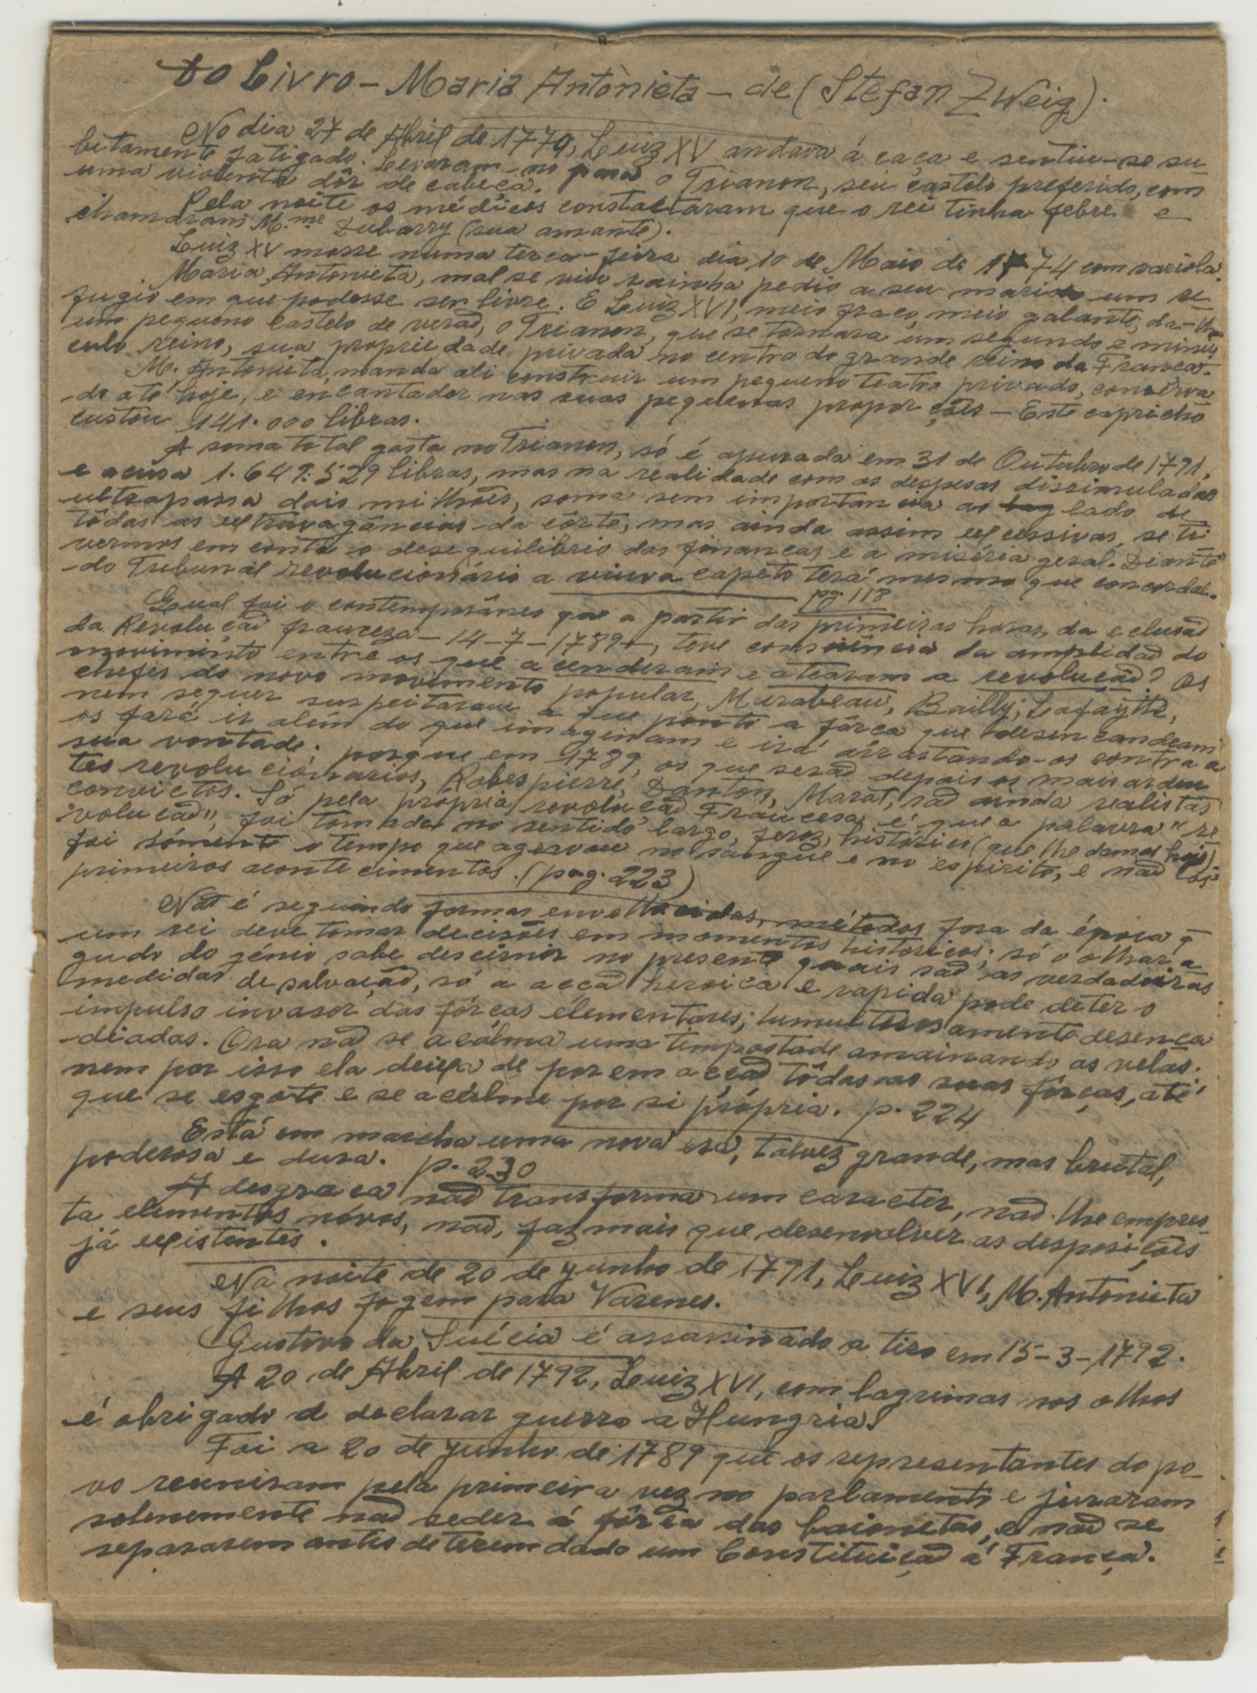 Do Livro - Maria Antònieta - de (Stefan Zweig).
No dia 27 de Abril de 1774, Luiz XV andava á caça e sentiu-se su-
bitamente fatigado. Levaram-no para o Trianon, seu castelo preferido, com
uma violenta dôr de cabeça.
Pela noite os médicos constataram que o rei tinha febre e
chamaram M.me Dubarry (sua amante).
Luiz XV morre numa terca-feira dia 10 de Maio de 1774 com variola.
Maria Antonieta, mal se viu rainha pediu a seu marido um re-
fugio em que podesse ser livre. E Luiz XVI, meio fraco, meio galante, dá-lhe
um pequeno castelo de verão, o Trianon, que se tornara um segundo e minus-
culo reino, sua propriedade privada no centro do grande reino da França.
M. Antonieta, manda ali construir um pequeno teatro privado, conserva-
do até hoje, e encantador nas suas pequenas proporções - Este capricho
custou 141.000 libras.
A soma total gasta no Trianon, só é apurada em 31 de Outubro de 1791,
e acusa 1.649.529 libras, mas na realidade com as despesas dissimuladas
ultrapassa dois milhões, soma sem importancia ao lado de
tôdas as extravagâncias da côrte, mas ainda assim excessivas, se ti-
vermos em conta o desequilibrio das finanças e a miséria geral. Diante
do Tribunal revolucionário a viuva capeto terá mesmo que concordar.
pg 118
Qual foi o contemporâneo que a partir das primeiras horas da eclusão
da Revolução franceza - 14-7-1789 -, teve consciência da amplidão do
movimento entre os que acenderam e atearam a revolução? Os
chefes do novo movimento popular, Mirabeau, Bailly, Lafayette,
nem sequer suspeitaram a que ponto a fôrça que desencandeam
os fará ir alem do que imaginam e irá arrastando-os contra a
sua vontade; porque em 1789, os que serão depois os mais arden-
tes revolucionarios, Robespierre, Danton, Marat, são ainda realistas
convictos. Só pela própria revolução Francesa é que a palavra "re-
volução", foi tomada no sentido largo, feroz, histórico (que lhe damos hoje)
foi sómente o tempo que agravou no sangue e no espirito, e não os
primeiros acontecimentos. (pag. 223)
Não é seguindo formas envelhecidas, métodos fora da época q̃
um rei deve tomar decisões em momentos históricos; só o olhar a-
gudo do génio sabe descirnir no presente quais são as verdadeiras
medidas de salvação, só a acção heroica e rapida pode deter o
impulso invasor das fôrças elementares, tumultuosamente desenca-
diadas. Ora não se acalma uma tempestade amainando as velas.
nem por isso ela deixa de por em acção tôdas as suas fôrças, até
que se esgote e se acalme por si própria. p. 224
Está em marcha uma nova era, talvez grande, mas brutal,
poderosa e dura. p. 230
A desgraça não transforma um caracter, não lhe empres-
ta elementos nóvos, não, faz mais que desenvolver as desposições
já existentes.
Na noite de 20 de junho de 1791, Luiz XVI, M. Antonieta
e seus filhos fogem para Varenes.
Gustavo da Suécia é assassinado a tiro em 15-3-1792.
A 20 de Abril de 1792, Luiz XVI, com lagrimas nos olhos
é obrigado a declarar guerra a Hungria.
Foi a 20 de junho de 1789 que os representantes do po-
vo reuniram pela primeira vez no parlamento e juraram
solenemente não ceder á fôrça das baionetas, e não se
separarem antes de terem dado um Constituição á França.